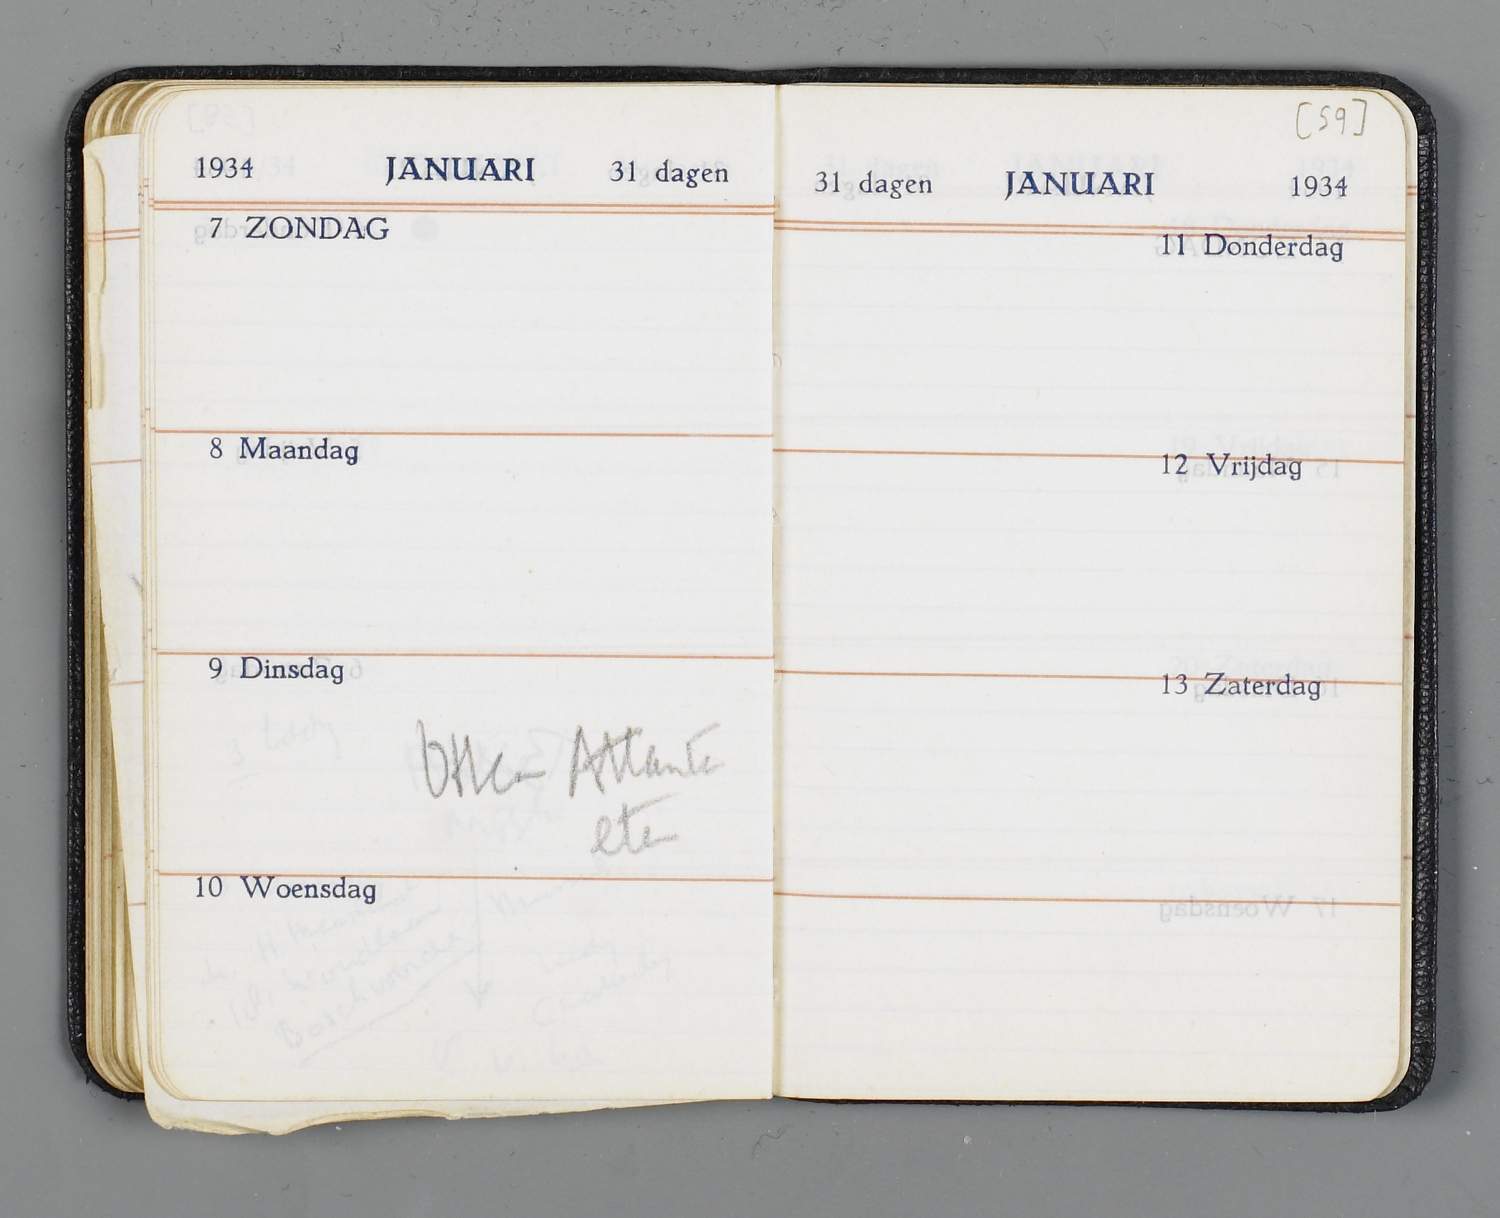 1934 JANUARI 31 dagen
7 ZONDAG
8 Maandag
9 Dinsdag
etc
10 Woensdag
[59]
31 dagen JANUARI 1934
11 Donderdag
12 Vrijdag
13 Zaterdag